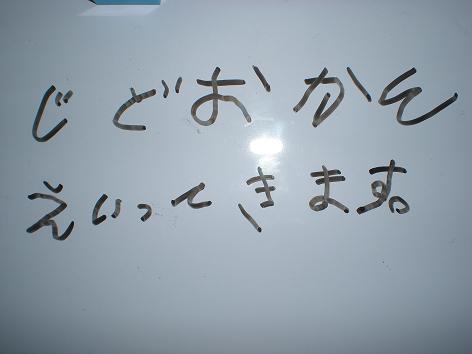 じどおかん
えいってきます。